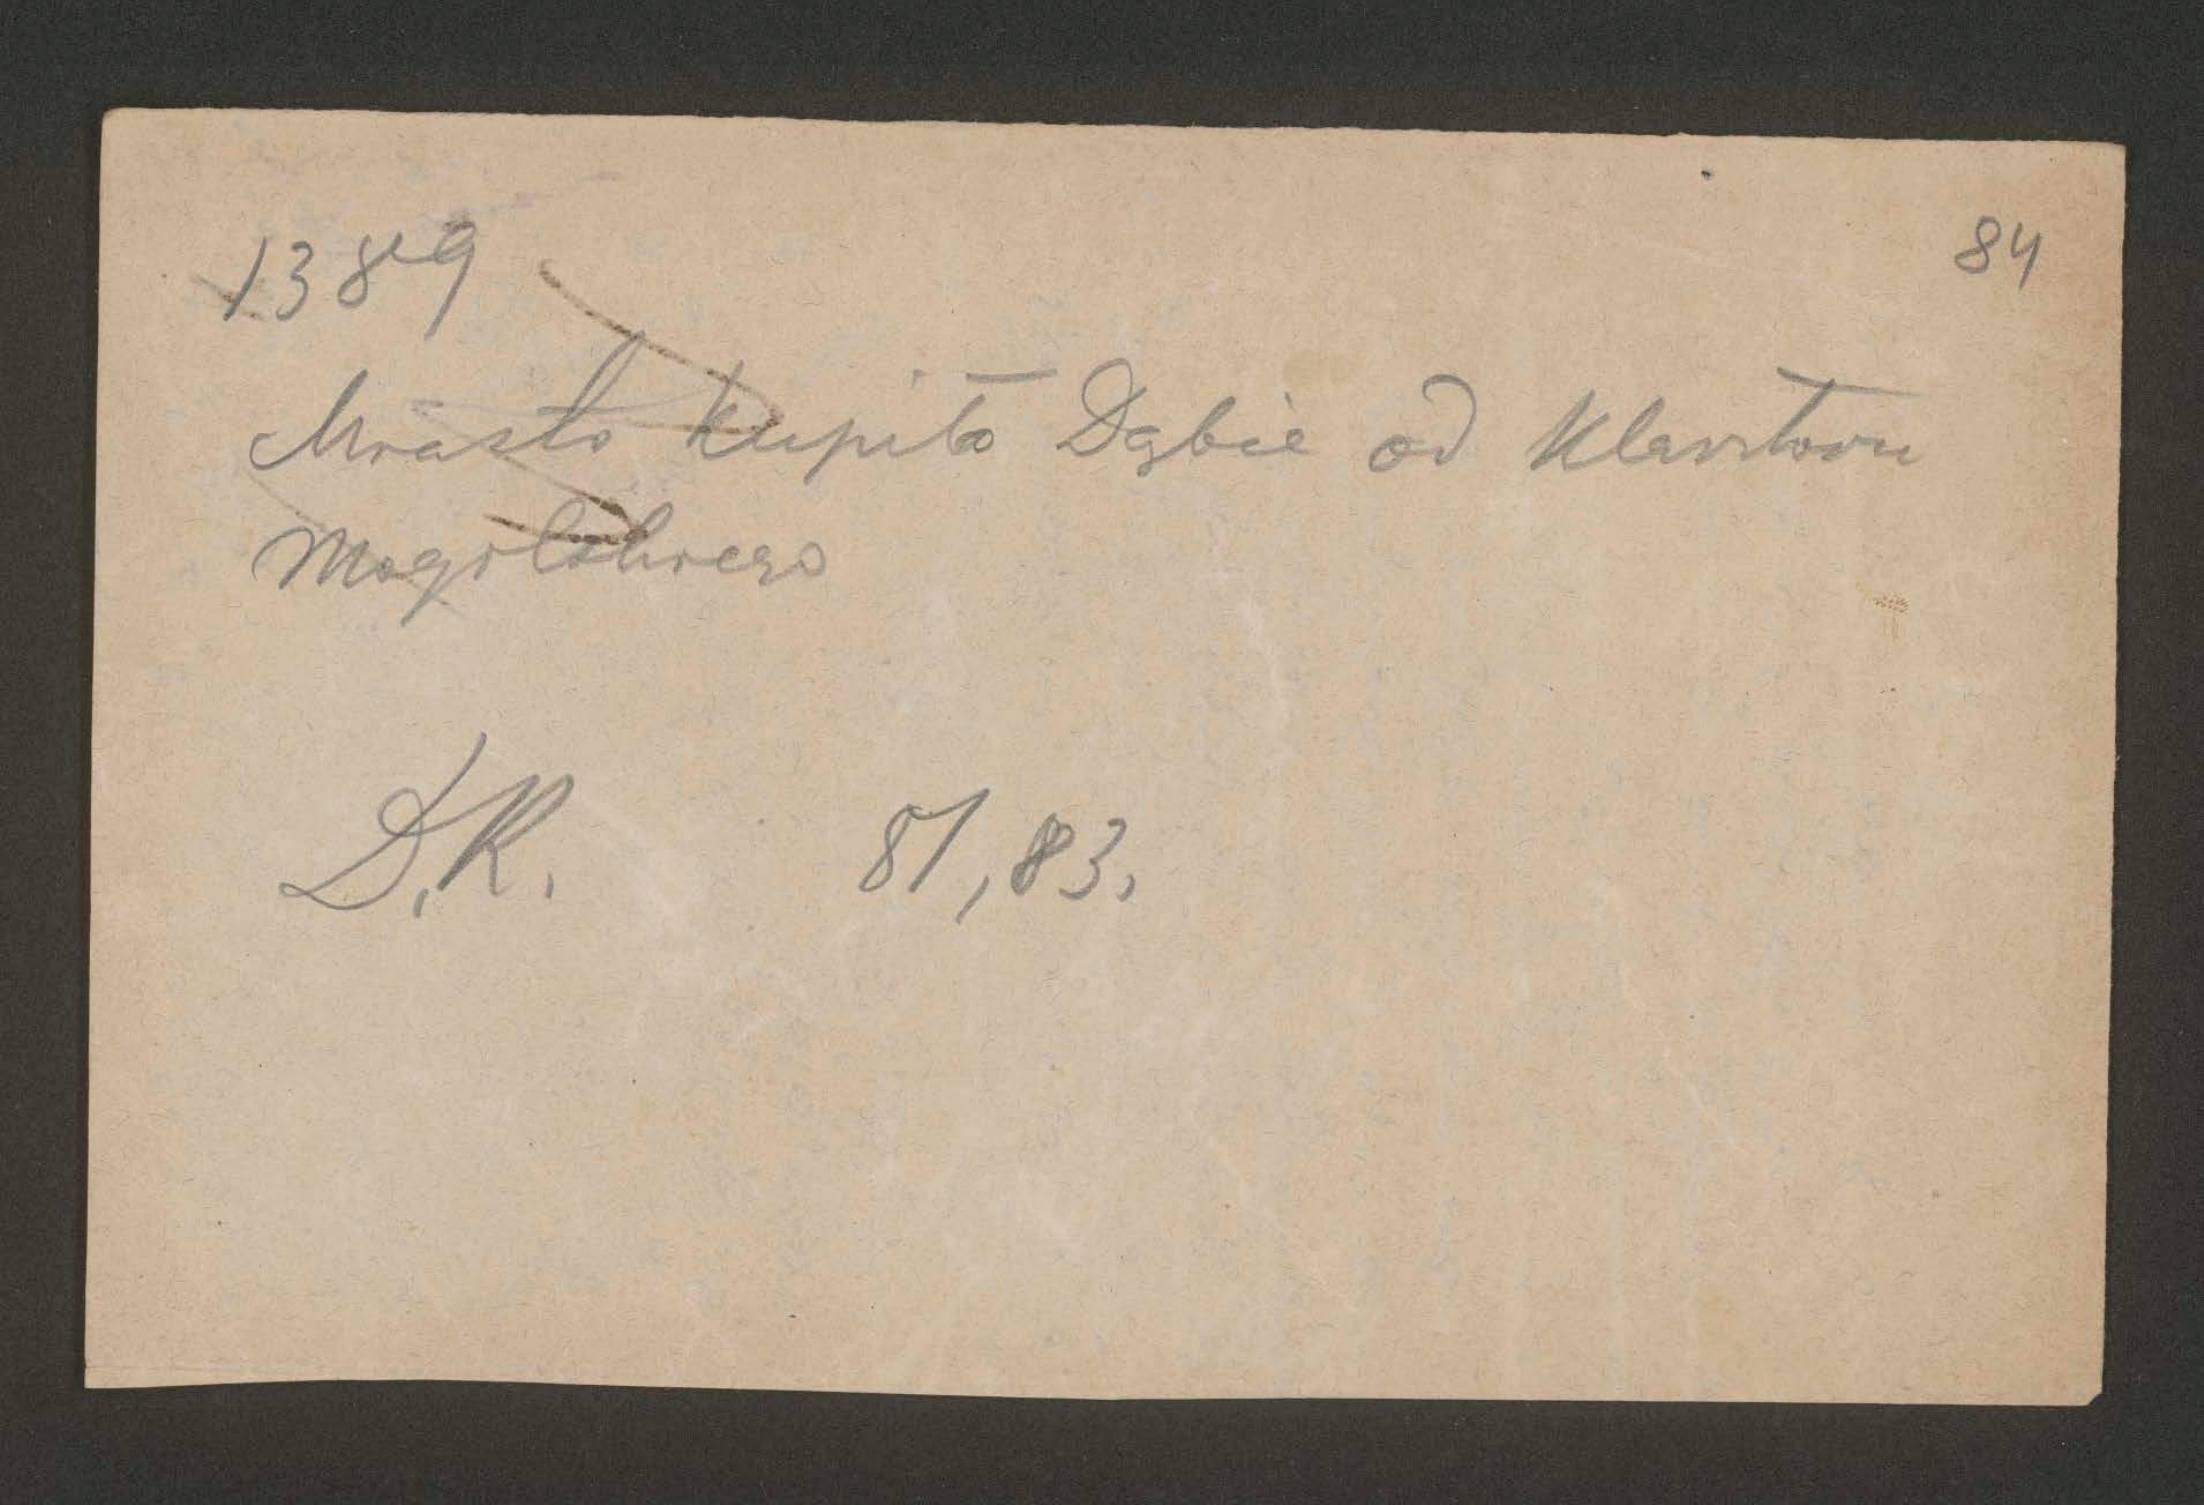 84
1389
Miasto kupiło Dąbie od Klasztoru
Mogilskiego
D.K. 81, 83.